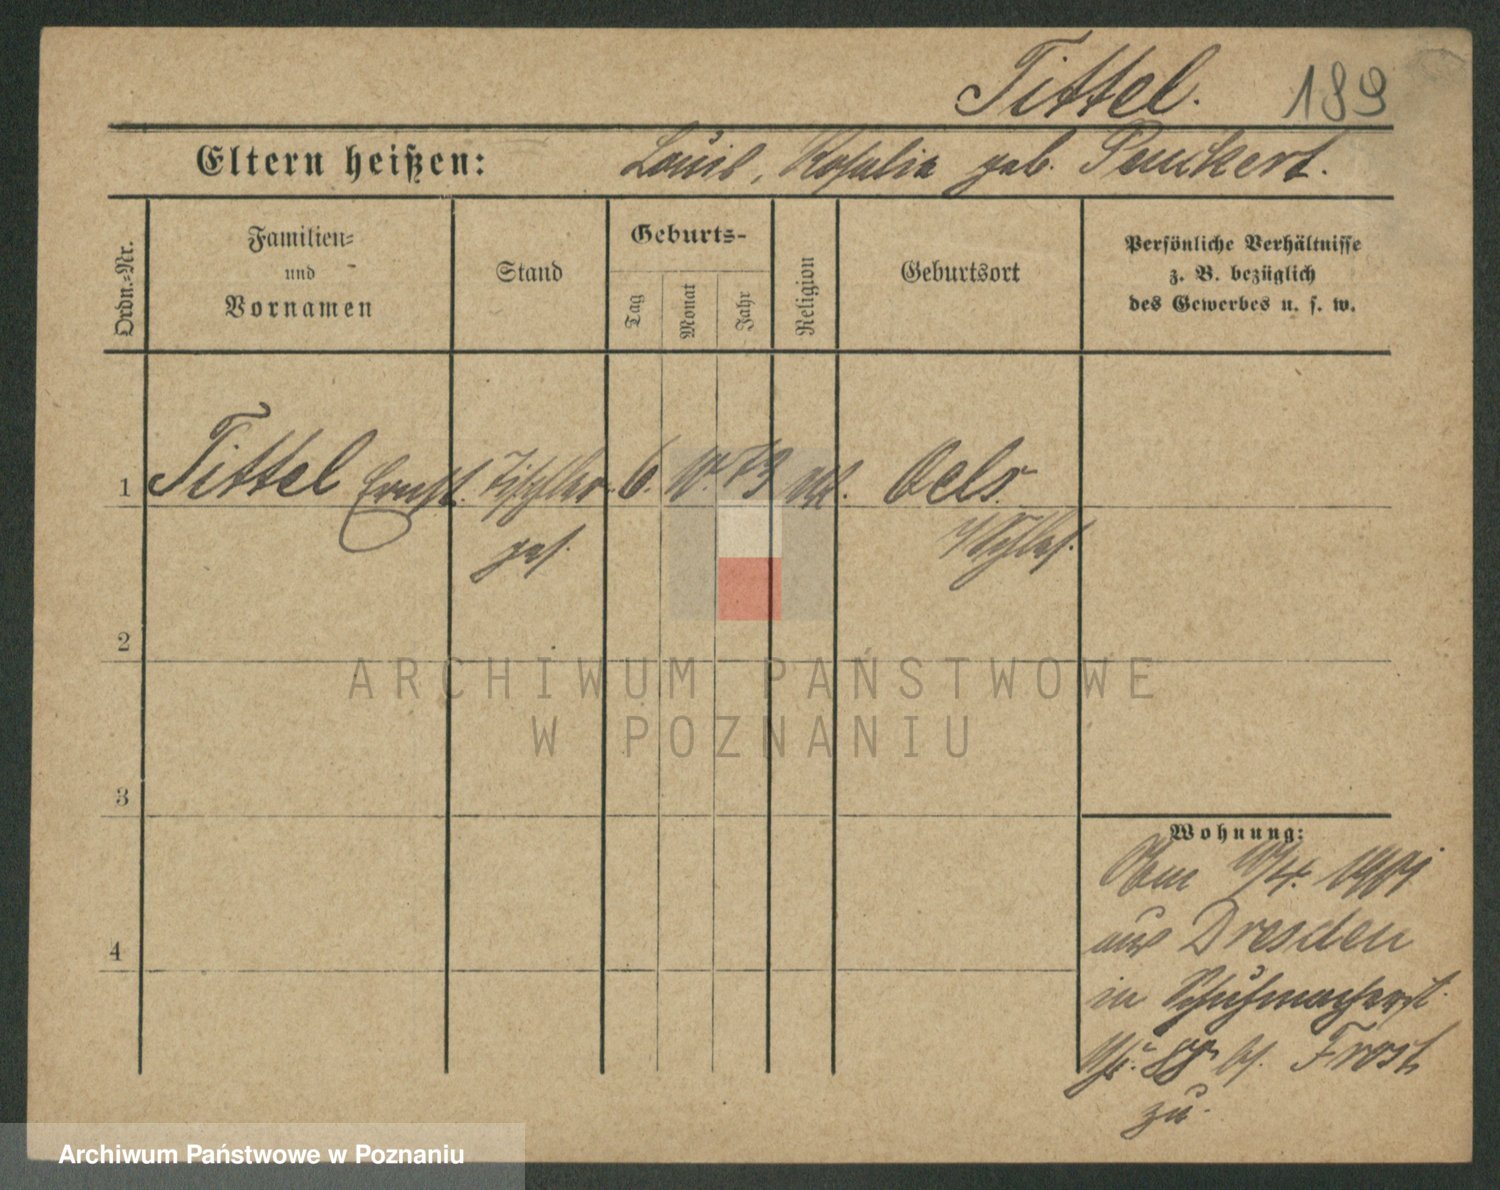 Tittel. 189
Eltern heißen: Louis, Rosalie geb. Penckert.
Ordn.-Nr.
Familien-
und
Vornamen
Stand
Geburts-
Tag
Monat
Jahr
Religion
Geburtsort
Persönliche Verhältnisse
z. B. bezüglich
des Gewerbes u. s. w.
1 Tittel Ernst. Tischler- 6. 10. 73 Oels
ges. i/Schles.
2
3
4
Wohnung:
10/4.
aus Dresden
in Schuhmacherst.
bei Frost
zu.
ARCHIWUM PAŃSTWOWE
W POZNANIU
Archiwum Państwowe w Poznaniu